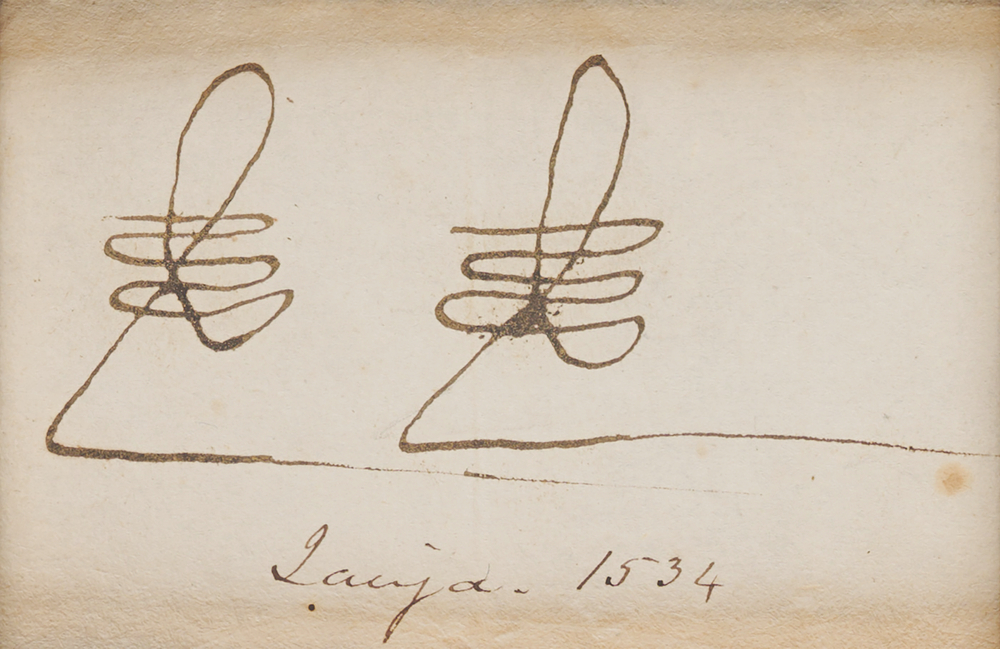 Jauja. 1534